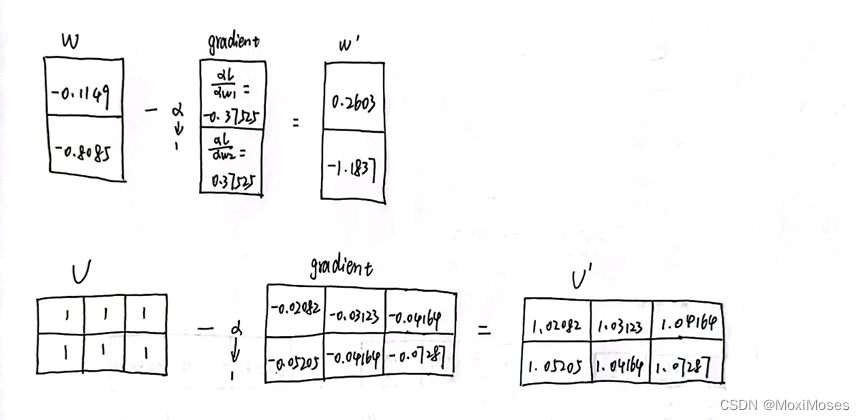 W gradient W'
-0.1149 - α ∂L/∂w1 = -0.37525 = 0.2603
↓
1
-0.8085 ∂L/∂w2 = 0.37525 -1.1837
U gradient U'
1 1 1 - α -0.02082 -0.03123 -0.04164 = 1.02082 1.03123 1.04164
↓
1
1 1 1 -0.05205 -0.04164 -0.07287 1.05205 1.04164 1.07287
CSDN @MoxiMoses